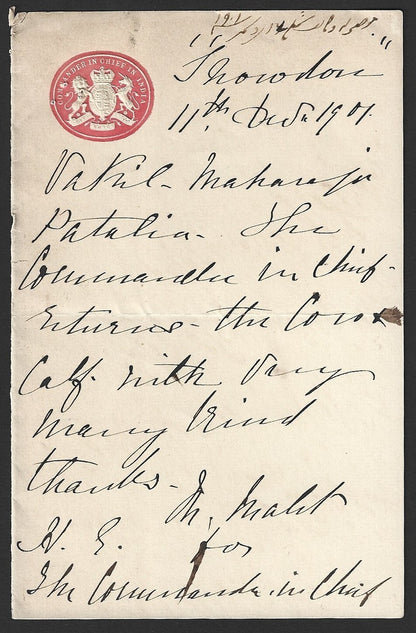 COMMANDER IN CHIEF IN INDIA
"Snowdon"
11th Decr. 1901.
Vakil - Maharaja
Patalia - The
Commander in Chief
returns - the Cow &
Calf. with very
many kind
thanks -
H. E. for
The Commander in Chief